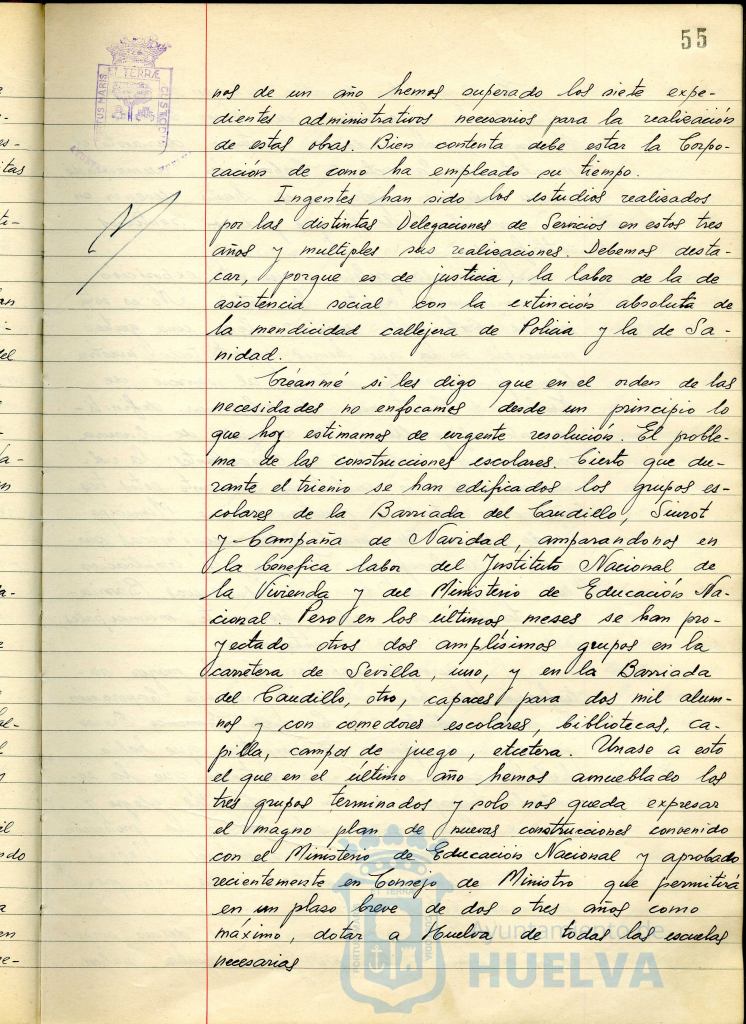 55
nos de un año hemos superado los siete expe-
dientes administrativos necesarios para la realización
de estas obras. Bien contenta debe estar la Corpo-
ración de como ha empleado su tiempo.
Ingentes han sido los estudios realizados
por las distintas Delegaciones de Servicios en estos tres
años y multiples sus realizaciones. Debemos desta-
car, porque es de justicia, la labor de la de
asistencia social con la extinción absoluta de
la mendicidad callejera de Policia y la de Sa-
nidad.
Créanme si les digo que en el orden de las
necesidades no enfocamos desde un principio lo
que hoy estimamos de urgente resolución. El proble-
ma de las construcciones escolares. Cierto que du-
rante el trienio se han edificados los grupos es-
colares de la Barriada del Caudillo, Siurot
y Campaña de Navidad, amparandonos en
la benefica labor del Instituto Nacional de
la Vivienda y del Ministerio de Educación Na-
cional. Pero en los últimos meses se han pro-
yectado otros dos amplísimos grupos en la
carretera de Sevilla, uno, y en la Barriada
del Caudillo, otro, capaces para dos mil alum-
nos y con comedores escolares, bibliotecas, ca-
pilla, campos de juego, etcetera. Unase a esto
el que en el último año hemos amueblado los
tres grupos terminados y solo nos queda expresar
el magno plan de nuevas construcciones convenido
con el Ministerio de Educación Nacional y aprobado
recientemente en Consejo de Ministro que permitirá
en un plaso breve de dos o tres años como
máximo, dotar a Huelva de todas las escuelas
necesarias
Ayuntamiento de
HUELVA